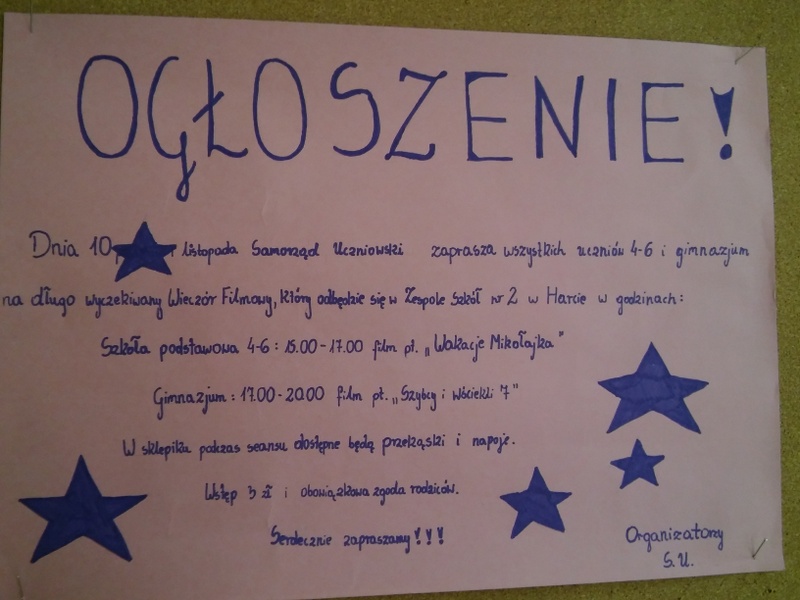 OGŁOSZENIE!
Dnia 10 listopada Samorząd Uczniowski zaprasza wszystkich uczniów 4-6 i gimnazjum
na długo wyczekiwany Wieczór Filmowy, który odbędzie się w Zespole Szkół nr 2 w Harcie w godzinach:
Szkoła podstawowa 4-6: 15.00-17.00 film pt. „Wakacje Mikołajka"
Gimnazjum: 17.00-20.00 film pt. „Szybcy i Wściekli 7"
W sklepiku podczas seansu dostępne będą przekąski i napoje.
Wstęp 3 zł i obowiązkowa zgoda rodziców.
Serdecznie zapraszamy!!!
Organizatorzy
S.U.